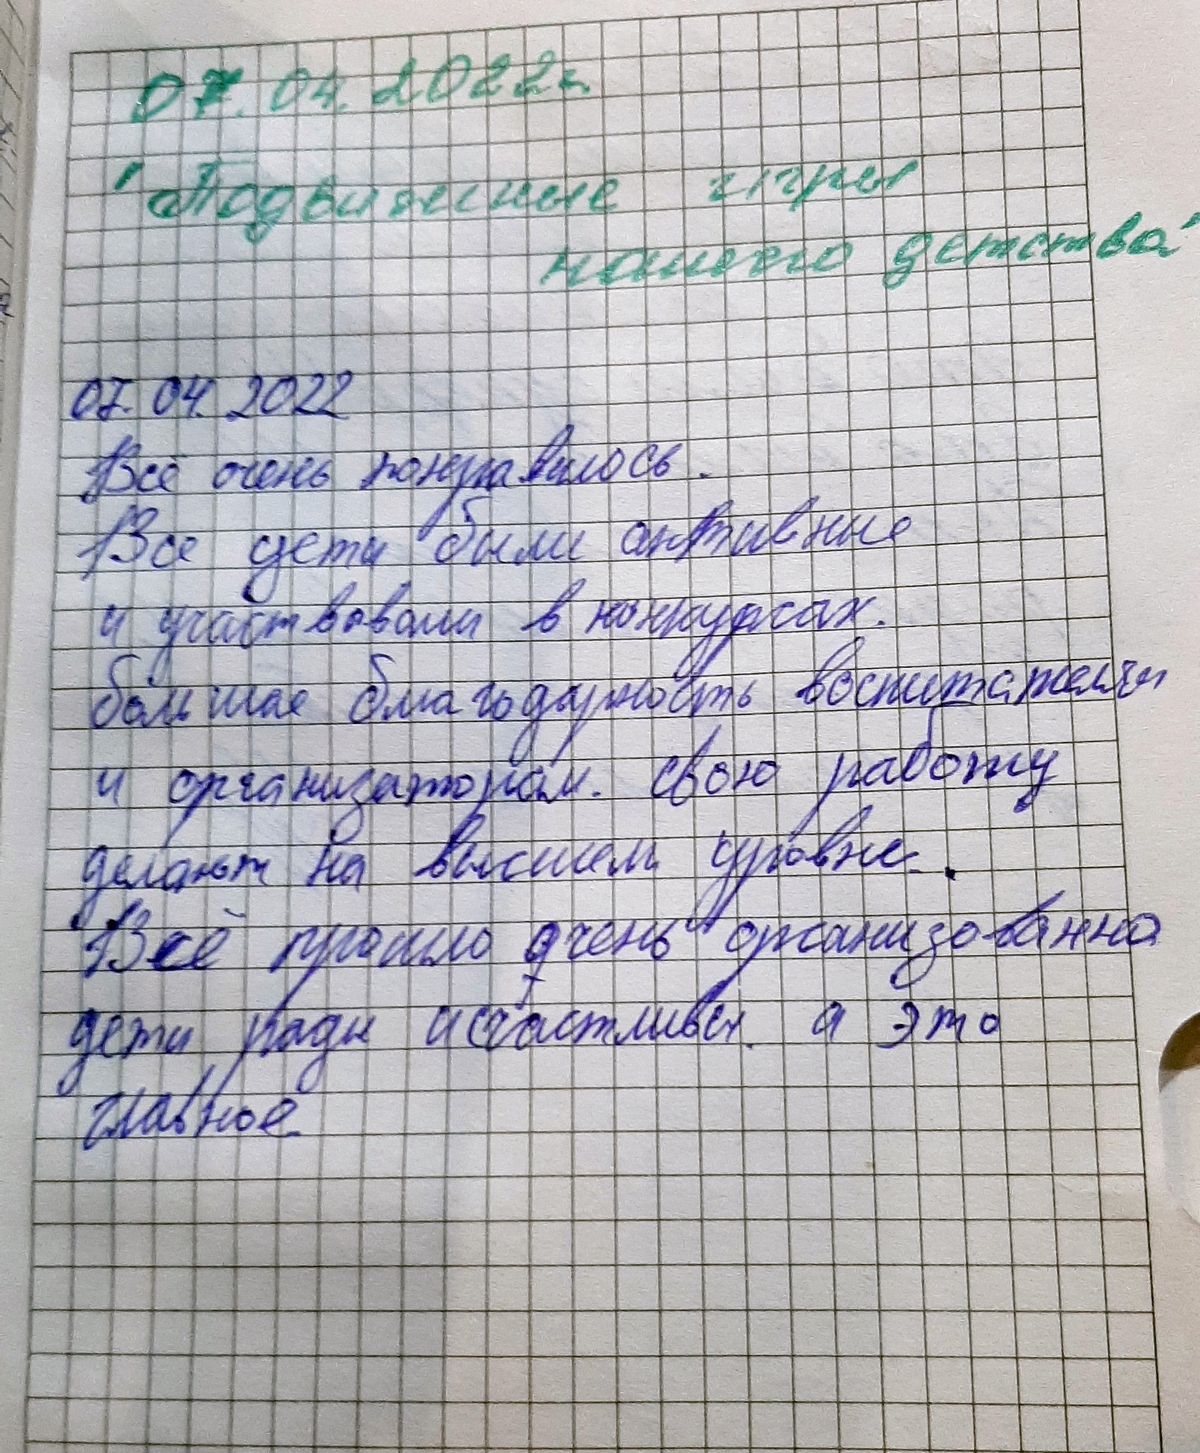 07.04.2022г.
"Подвижные игры
нашего детства"
07.04.2022
Всё очень понравилось.
Все дети были активные
и участвовали в конкурсах.
большае благодарность воспитателям
и организаторам. свою работу
делают на высшем уровне.
Всё прошло очень организованно
дети рады и счастливы. а это
главное.